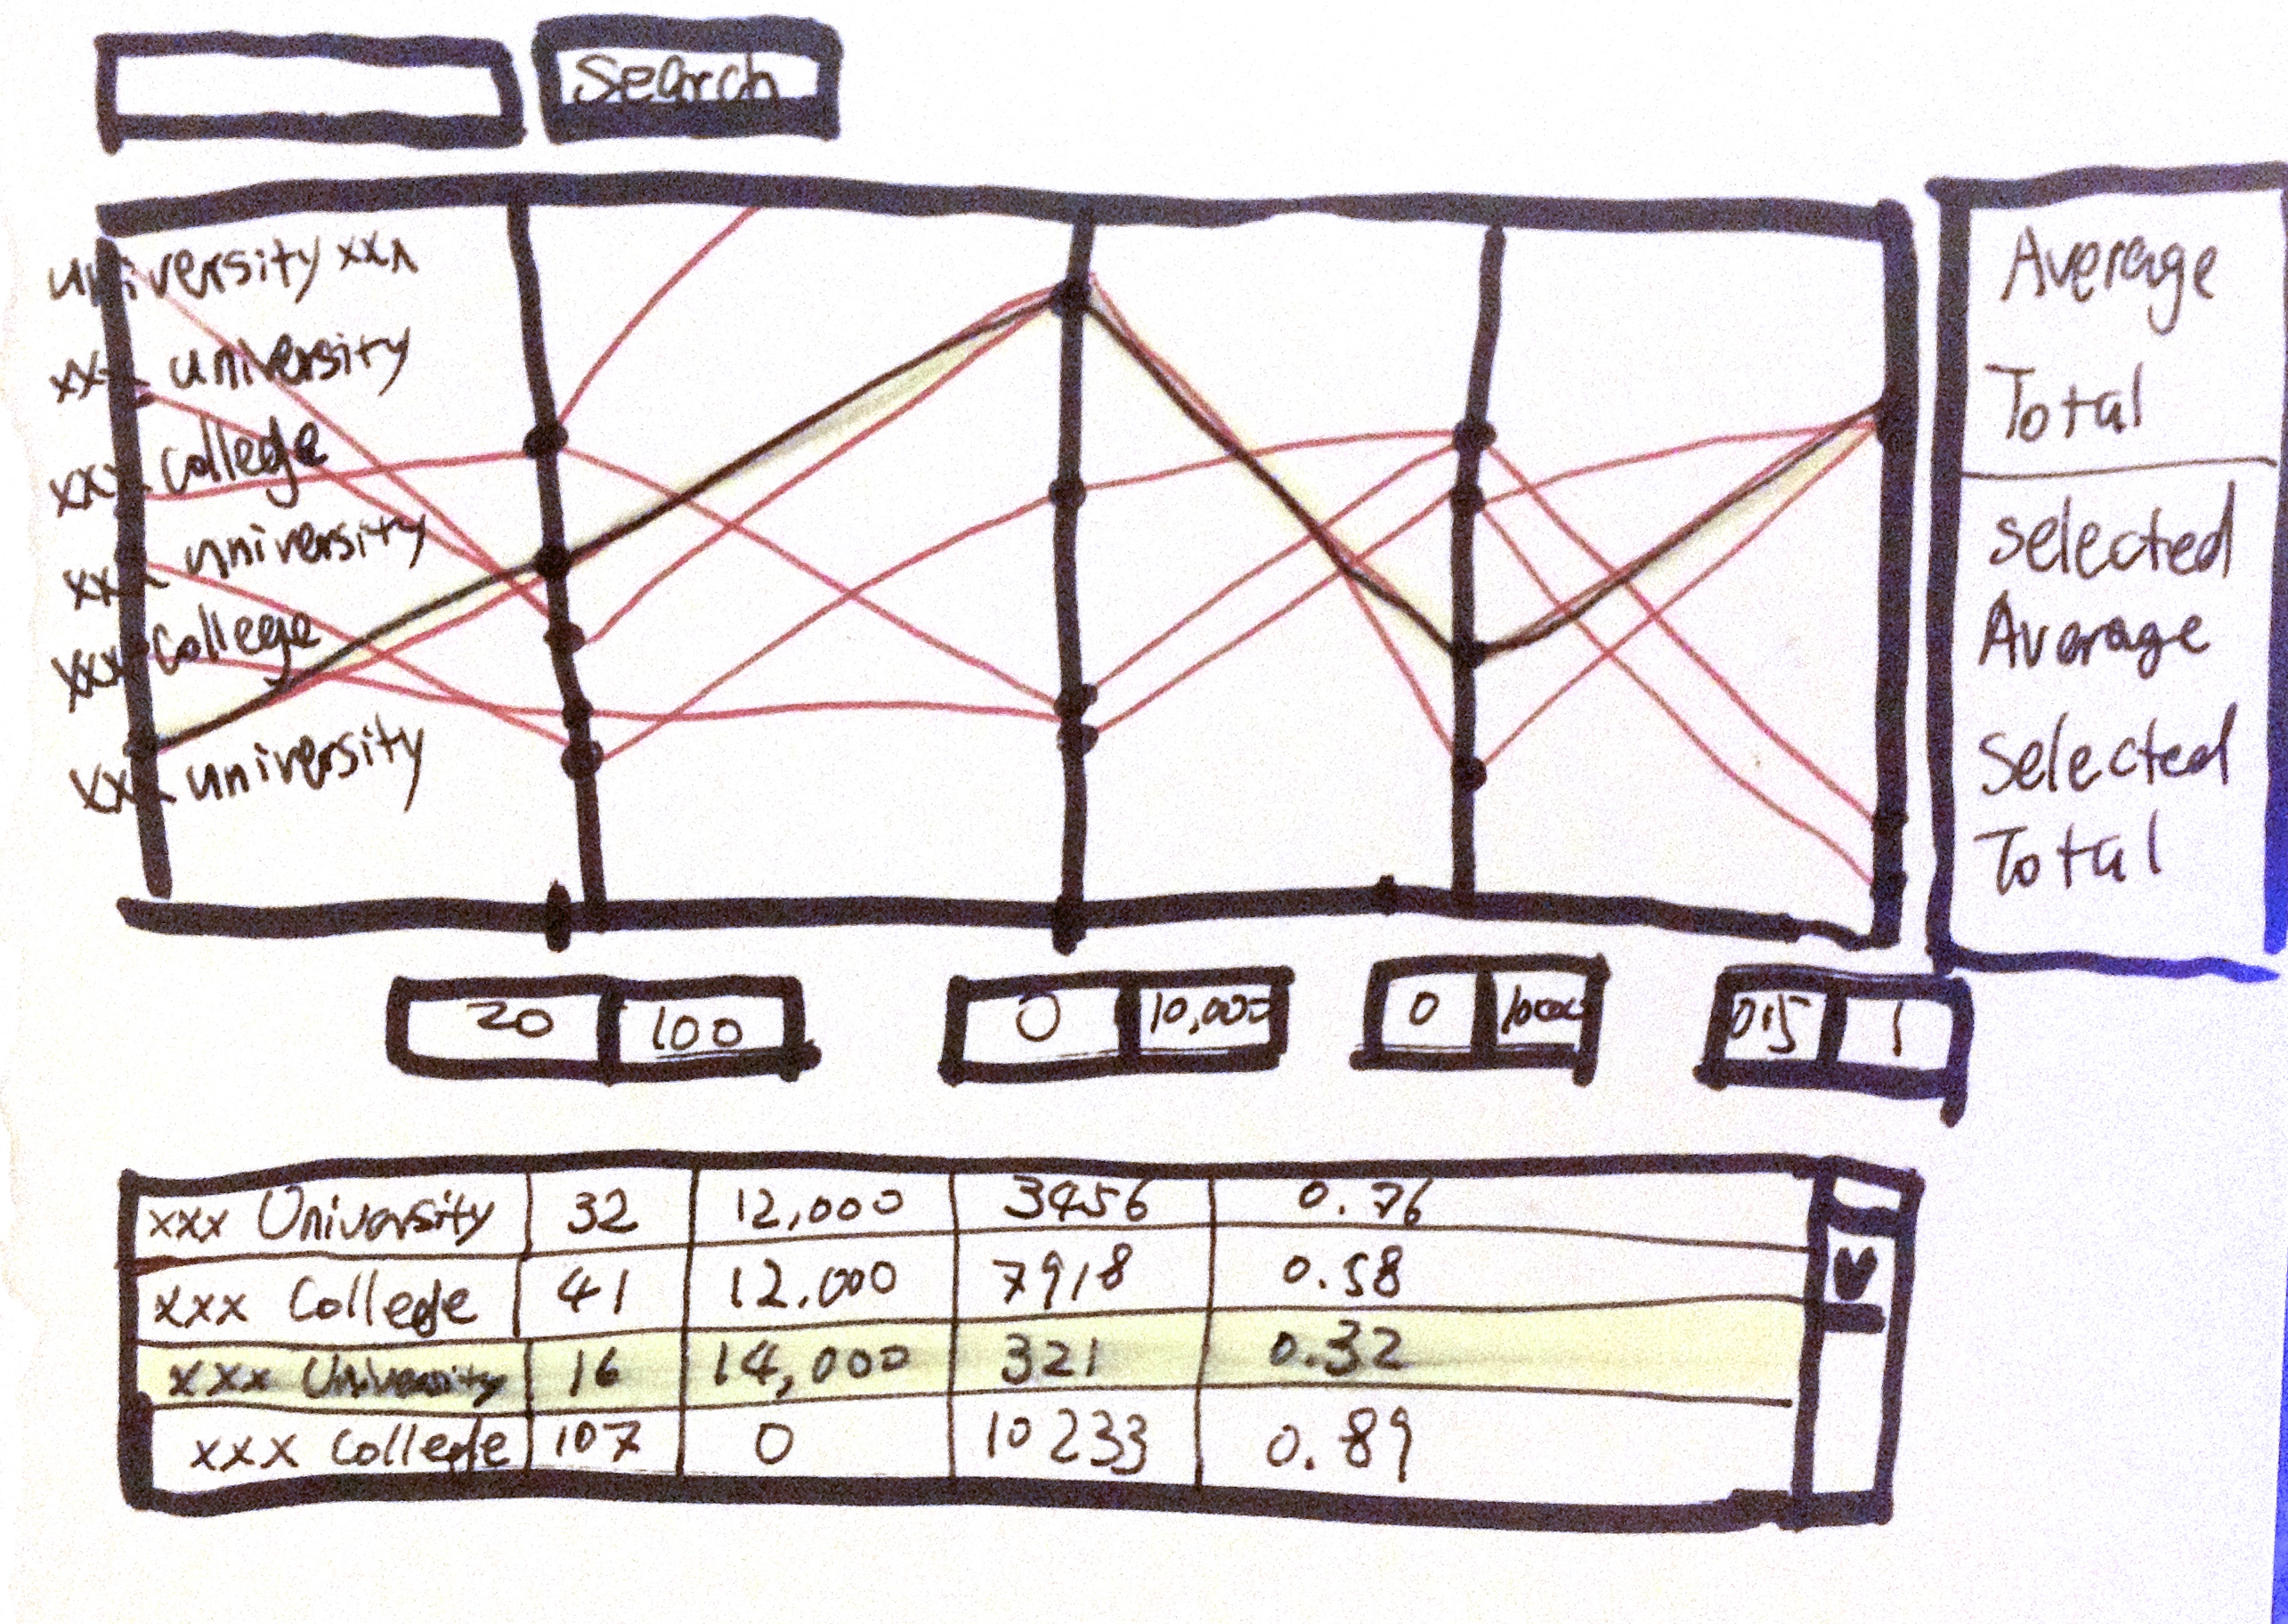 Search
university xxx
xxx university
xxx college
xxx university
xxx college
xxx university
Average
Total
selected
Average
Selected
Total
20 100
0 10,000
0
0.5 1
xxx University 32 12,000 3456 0.76
xxx College 41 12,000 7918 0.58
xxx University 16 14,000 321 0.32
xxx College 107 0 10233 0.89